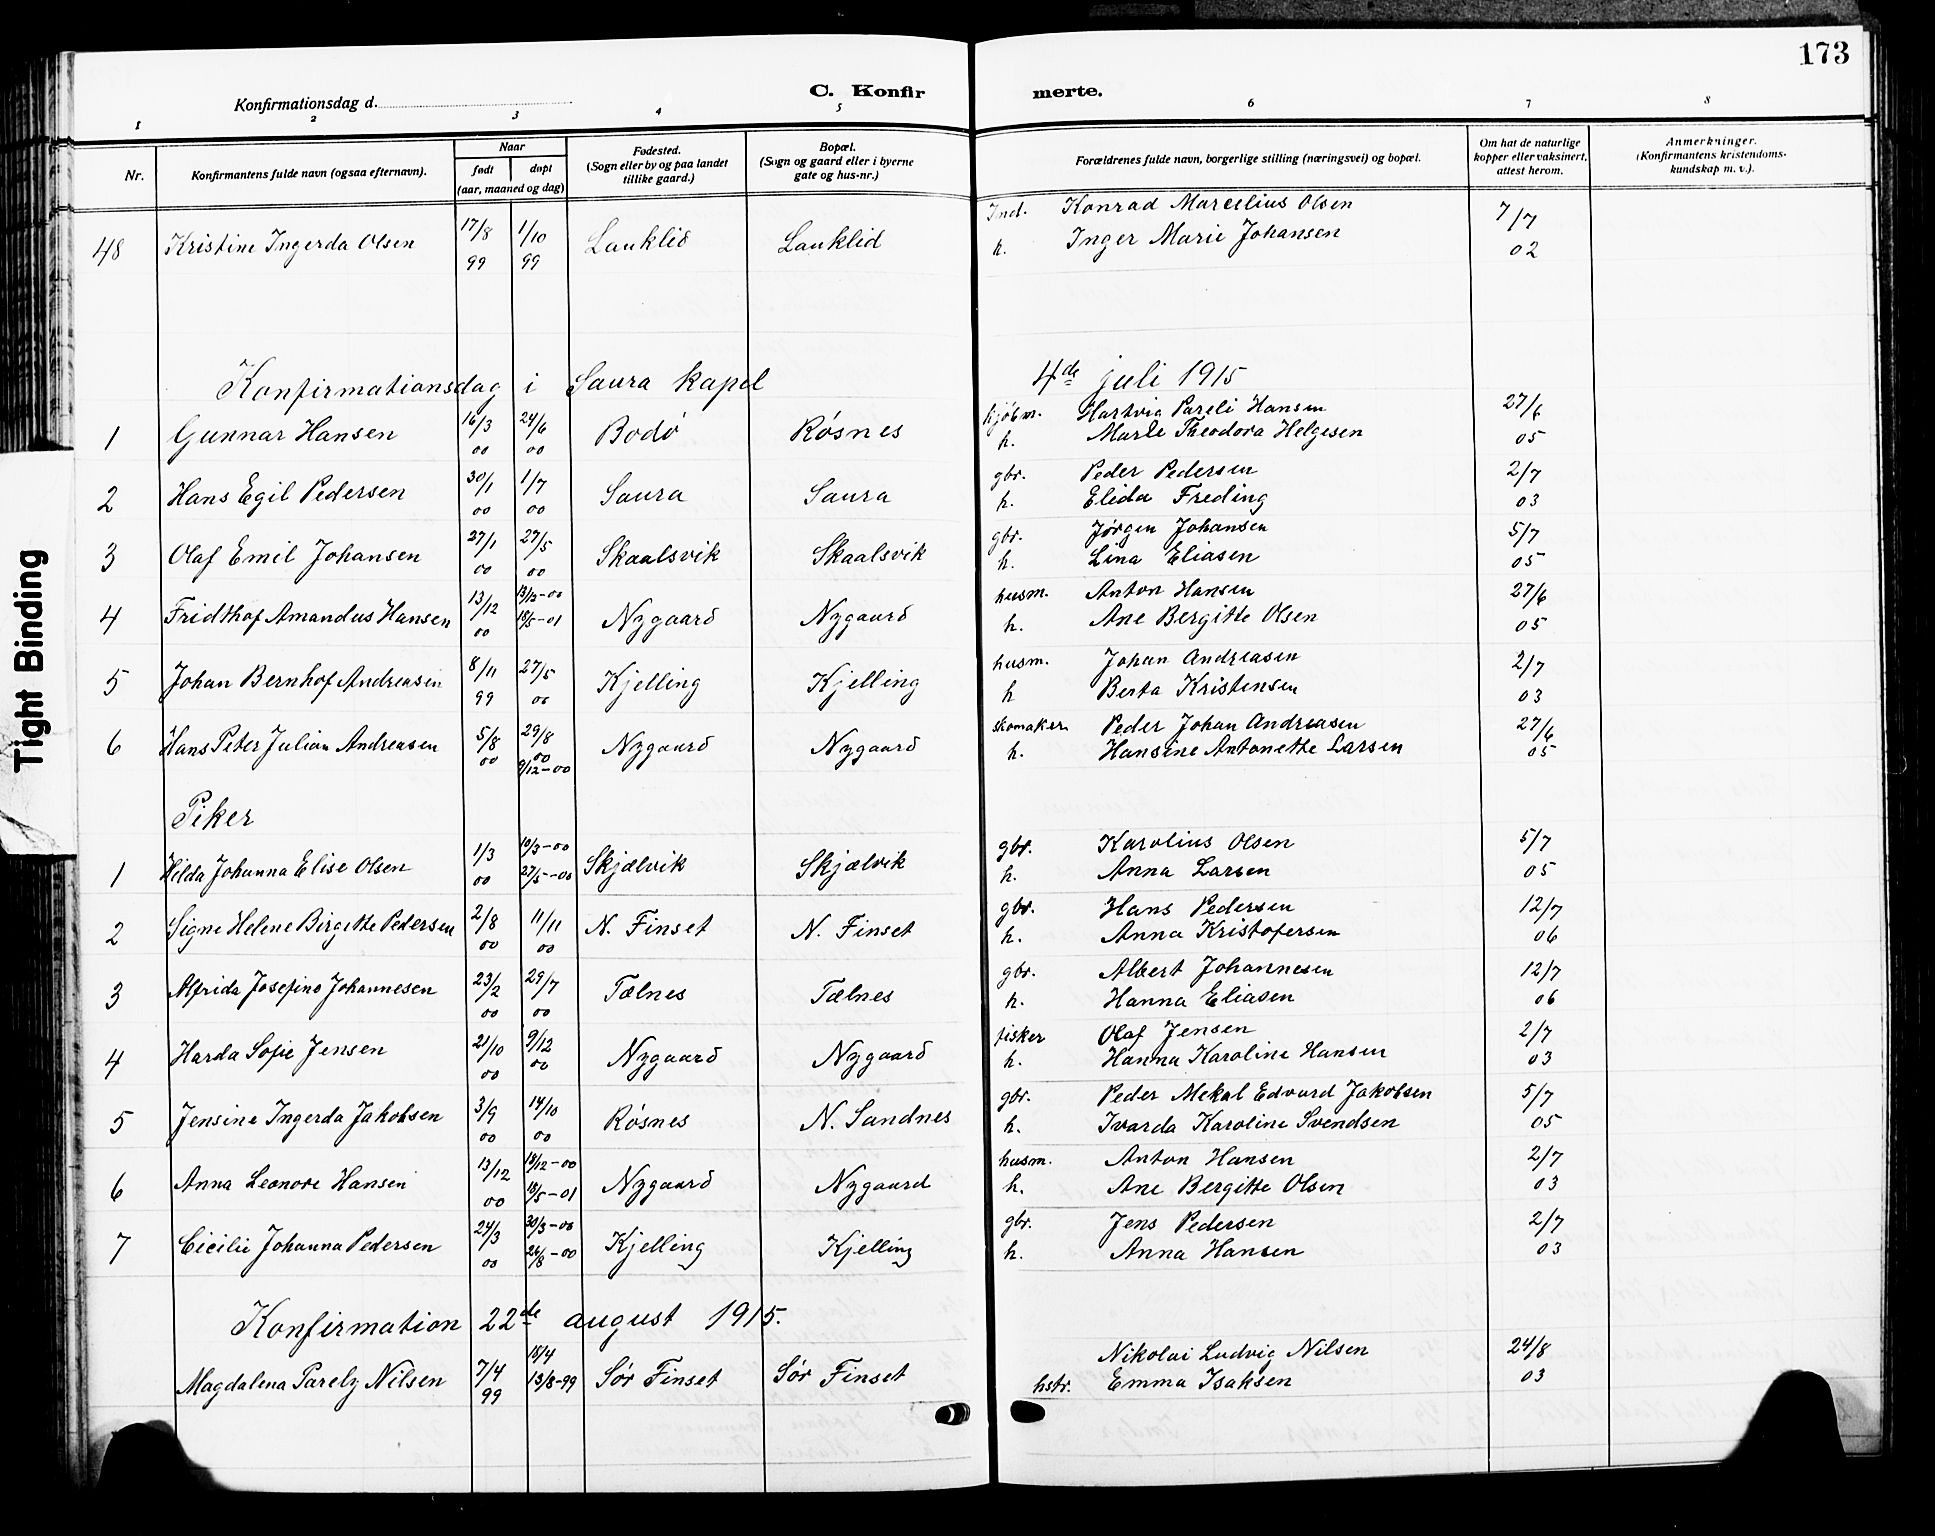 173
Konfirmationsdag d.
C. Konfir merte.
1 2 3 4 5 6 7 8
Nr. Konfirmantens fulde navn (ogsaa efternavn). Naar født døpt (aar, maaned og dag) Fødested. (Sogn eller by og paa landet tillike gaard.) Bopæl. (Sogn og gaard eller i byerne gate og hus-nr.) Forældrenes fulde navn, borgerlige stilling (næringsvei) og bopæl. Om hat de naturlige kopper eller vaksinert, attest herom. Anmerkninger. (Konfirmantens kristendoms-kundskap m. v.).
Ind. Konrad Marcelius Olsen 7/7
48 Kristine Ingerda Olsen 17/8 99 1/10 99 Lauklid Lauklid h. Inger Marie Johansen 02
Konfirmationsdag i Saura kapel 4de juli 1915
kjøbm. Hartvig Pareli Hansen 27/6
1 Gunnar Hansen 16/3 00 24/6 00 Bodø Røsnes h. Marie Theodora Helgesen 05
gbr. Peder Pedersen 2/7
2 Hans Egil Pedersen 30/1 00 1/7 00 Saura Saura h. Elida Freding 03
gbr. Jørgen Johansen 5/7
3 Olaf Emil Johansen 27/1 00 27/5 00 Skaalsvik Skaalsvik h. Lina Eliasen 05
husm. Anton Hansen 27/6
4 Fridthof Amandus Hansen 13/12 00 13/12-00 18/5-01 Nygaard Nygaard h. Ane Bergitte Olsen 05
husm. Johan Andreasen 2/7
5 Johan Bernhof Andreasen 8/11 99 27/5 00 Kjelling Kjelling h Berta Kristensen 03
skomaker Peder Johan Andreasen 27/6
6 Hans Peter Julian Andreasen 5/8 00 29/8 00 9/12-00 Nygaard Nygaard h. Hansine Antonette Larsen 05
Piker
gbr. Karolius Olsen 5/7
1 Hilda Johanna Elise Olsen 1/3 00 10/3-00 27/5-00 Skjælvik Skjælvik h. Anna Larsen 05
gbr. Hans Pedersen 12/7
2 Signe Helene Birgitte Pedersen 2/8 00 11/11 00 N. Finset N. Finset h. Anna Kristofersen 06
gbr. Albert Johannesen 12/7
3 Alfrida Josefine Johannesen 23/2 00 29/7 00 Tælnes Tælnes h. Hanna Eliasen 06
fisker Olaf Jensen 2/7
4 Harda Sofie Jensen 21/10 00 9/12 00 Nygaard Nygaard h. Hanna Karoline Hansen 03
gbr. Peder Mekal Edvard Jakobsen 5/7
5 Jensine Ingerda Jakobsen 3/9 00 14/10 00 Røsnes N. Sandnes h. Ivarda Karoline Svendsen 05
husm. Anton Hansen 2/7
6 Anna Leonore Hansen 13/12 00 13/12-00 18/5-01 Nygaard Nygaard h. Ane Bergitte Olsen 03
gbr. Jens Pedersen 2/7
7 Cicilie Johanna Pedersen 24/3 00 30/3-00 26/8-00 Kjelling Kjelling h. Anna Hansen 03
Konfirmation 22de august 1915.
Nikolai Ludvig Nilsen 24/8
Magdalena Parely Nilsen 7/4 99 18/4 13/8-99 Sør Finset Sør Finset hstr. Emma Isaksen 03
Tight Binding